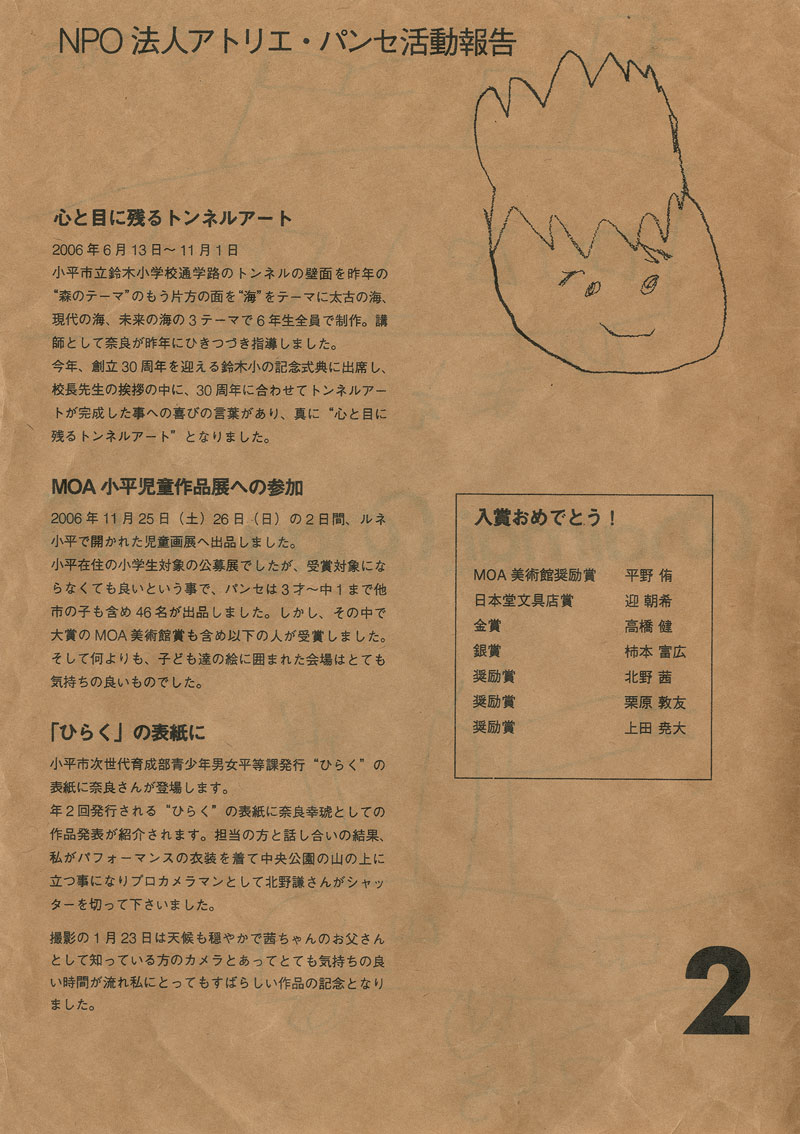 NPO 法人アトリエ・パンセ活動報告
心と目に残るトンネルアート
2006 年 6 月 13 日〜 11 月 1 日
小平市立鈴木小学校通学路のトンネルの壁面を昨年の
“森のテーマ”のもう片方の面を“海”をテーマに太古の海、
現代の海、未来の海の 3 テーマで 6 年生全員で制作。講
師として奈良が昨年にひきつづき指導しました。
今年、創立 30 周年を迎える鈴木小の記念式典に出席し、
校長先生の挨拶の中に、30 周年に合わせてトンネルアー
トが完成した事への喜びの言葉があり、真に “心と目に
残るトンネルアート” となりました。
MOA 小平児童作品展への参加
2006 年 11 月 25 日（土）26 日（日）の 2 日間、ルネ
小平で開かれた児童画展へ出品しました。
小平在住の小学生対象の公募展でしたが、受賞対象にな
らなくても良いという事で、パンセは 3 才〜中 1 まで他
市の子も含め 46 名が出品しました。しかし、その中で
大賞の MOA 美術館賞も含め以下の人が受賞しました。
そして何よりも、子ども達の絵に囲まれた会場はとても
気持ちの良いものでした。
「ひらく」の表紙に
小平市次世代育成部青少年男女平等課発行 “ひらく” の
表紙に奈良さんが登場します。
年 2 回発行される “ひらく” の表紙に奈良幸琥としての
作品発表が紹介されます。担当の方と話し合いの結果、
私がパフォーマンスの衣装を着て中央公園の山の上に
立つ事になりプロカメラマンとして北野謙さんがシャッ
ターを切って下さいました。
撮影の 1 月 23 日は天候も穏やかで茜ちゃんのお父さん
として知っている方のカメラとあってとても気持ちの良
い時間が流れ私にとってもすばらしい作品の記念となり
ました。
入賞おめでとう！
MOA 美術館奨励賞 平野 侑
日本堂文具店賞 迎 朝希
金賞 高橋 健
銀賞 柿本 富広
奨励賞 北野 茜
奨励賞 栗原 敦友
奨励賞 上田 尭大
2